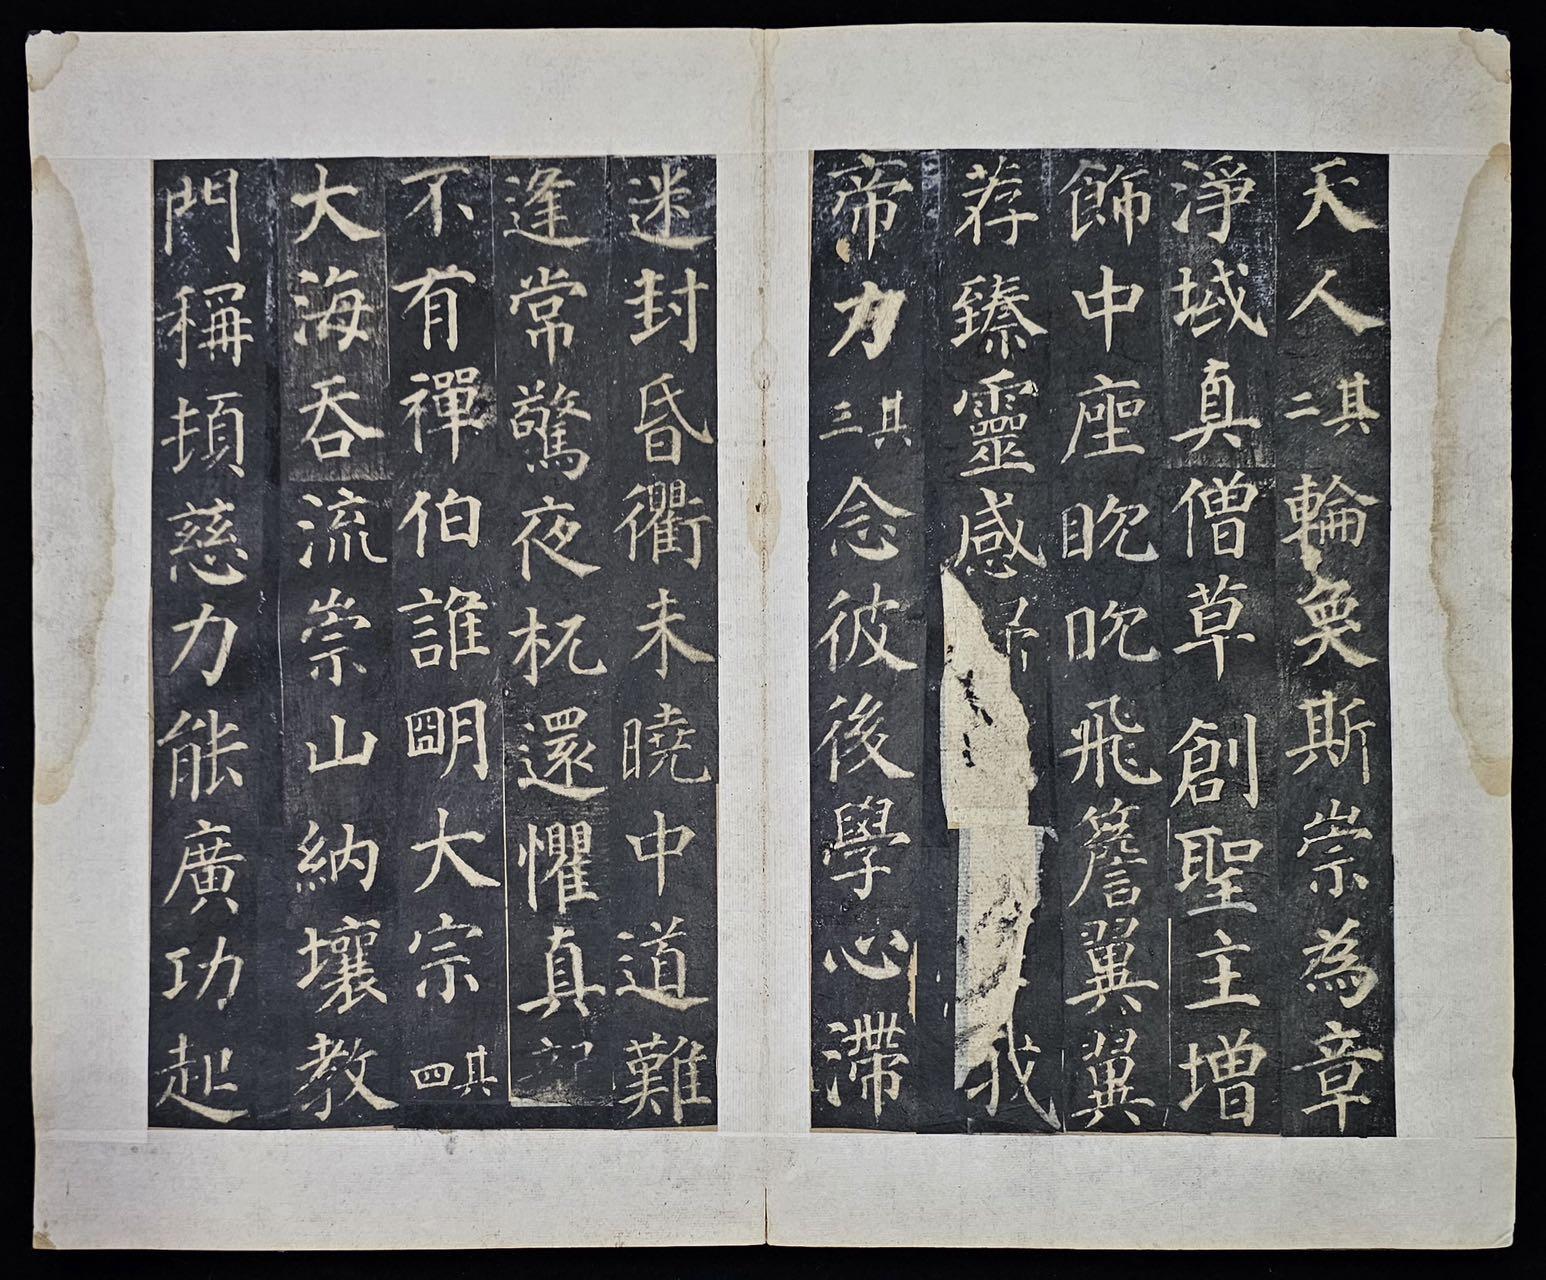 天人其二輪奐斯崇為章
淨域真僧草創聖主增
飾中座眈眈飛簷翼翼
荐臻靈感我
帝力其三念彼後學心滯
迷封昏衢未曉中道難
逢常驚夜杌還懼真
不有禪伯誰明大宗其四
大海吞流崇山納壤教
門稱頓慈力能廣功起